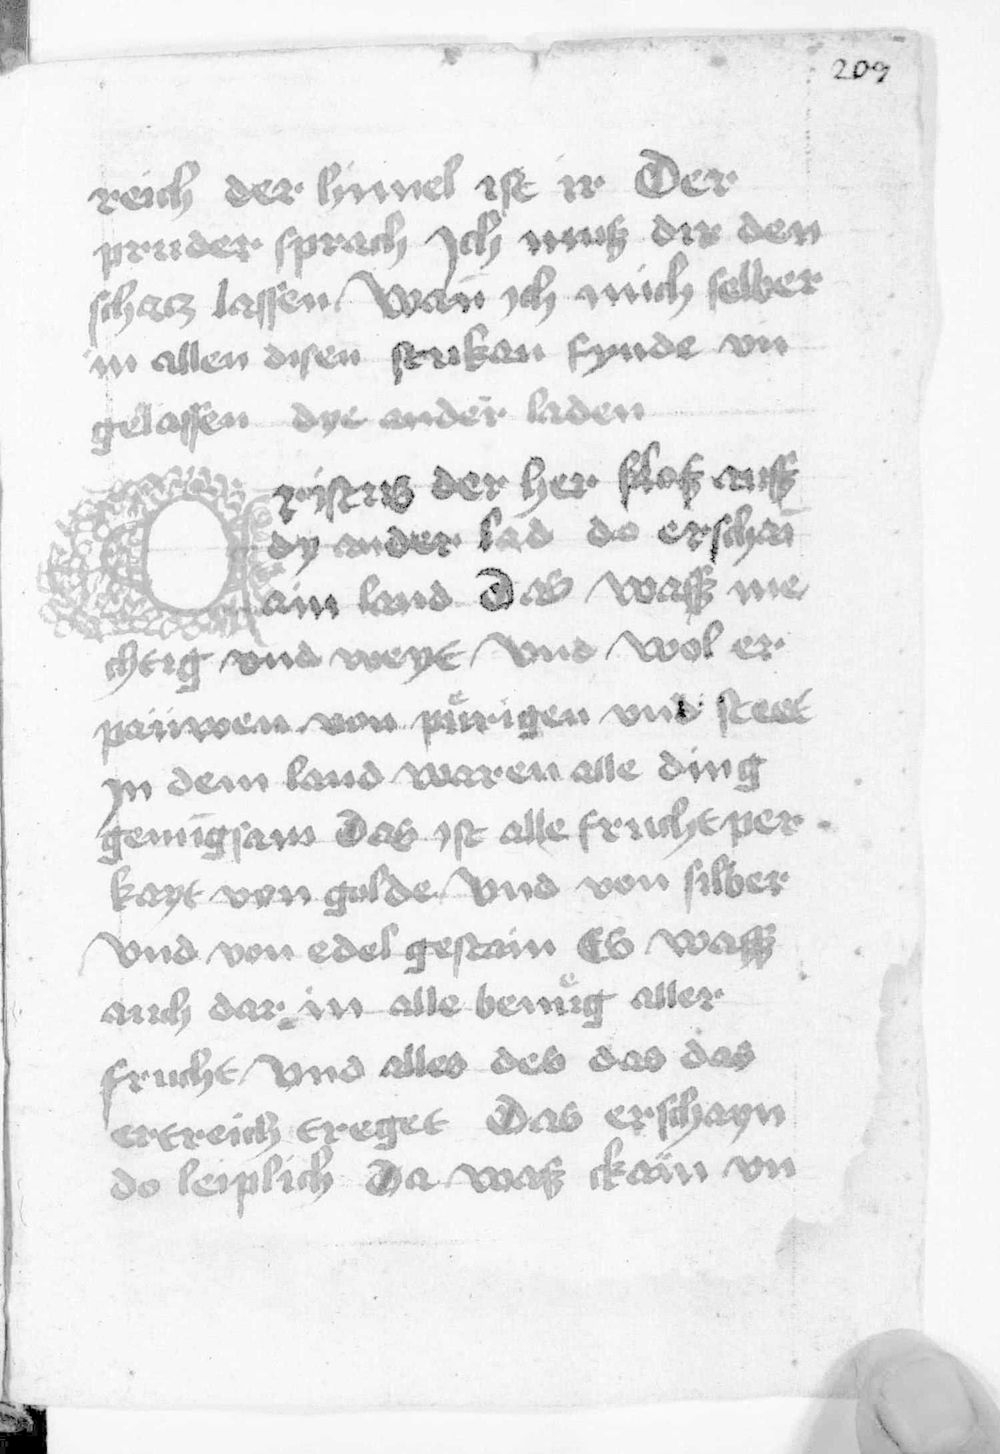 209
reich der himel ist ir Der
pruder sprach Ich mus dir den
schacz lassen Wan̄ ich mich selber
in allen disen strikan fynde vn̄
gelassen dye ander laden
Cristus der her slos auff
dy ander lad do erschai
ain land Das wass me
chtig vnd weyt Vnd wol er
paüwen von pürigen vnd steet
In dem land waren alle ding
genuigsam Das ist alle fruchtper
kayt von golde Vnd von silber
Vnd von edel gestain Es wass
auch dar in alle benuͤg aller
frucht Vnd alles des das das
ertreich treget Das erschayn
do leiplich Da was ckain vn